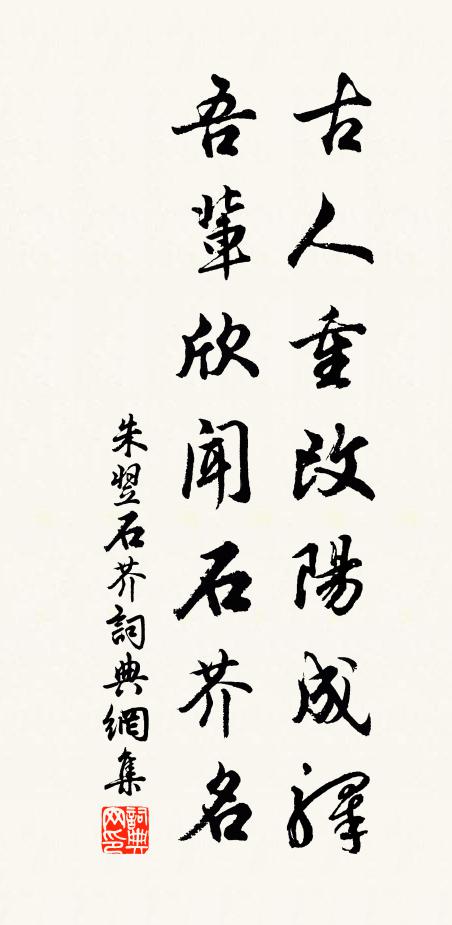 古人重改陽成驛
吾輩欣聞石芥名
朱翌石芥詞典網集
詞典网印